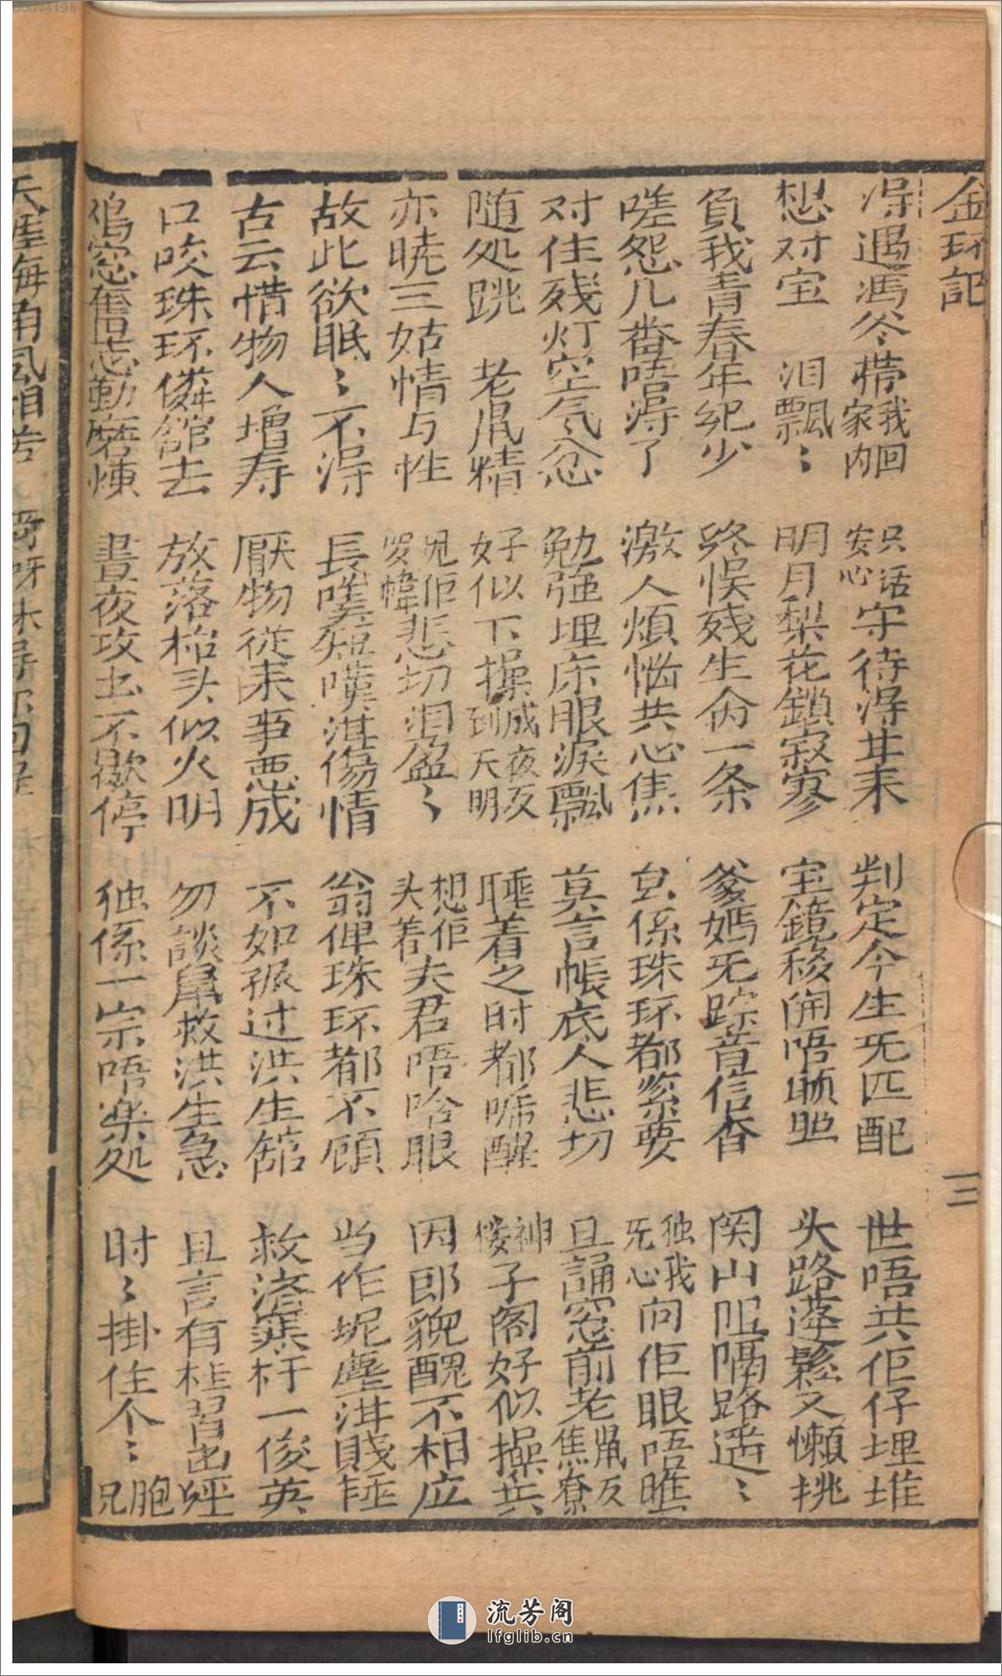 金环記
淂遇馮冬帶我回家内 只话安心守待淂其耒 判定今生旡匹配 世唔共佢仔埋堆
想对宝 泪飄〻 明月梨花鎖寂寥 宝鏡移開唔願照 头路蓬鬆又懶挑
負我青春年纪少 终悮残生命一条 爹媽旡踪音信杳 関山阻隔路遥〻
嗟怨几番唔淂了 激人煩惱共心焦 係珠环都緊要 独我旡心向佢眼唔瞧
对住残灯空气忿 勉强埋床眼淚飄 莫言帳底人悲切 且誦窓前老鼡反焦寮
随处跳 老鼡精 好子似下操成夜反到天明 睡着之时都醒 神楼子阁好似操兵
亦曉三姑情与性 見佢罗幃悲切泪盈〻 想佢头着夫君唔啱眼 因郎貌醜不相应
故此欲眠〻不淂 長嗟短嘆淇傷情 翁俾珠环都不顾 当作坭塵淇賤輕
古云惜物人增寿 厭物從耒事恶成 不如孤过洪生舘 救濟寒村一俊英
口咬珠环舘去 放落枱头似火明 勿談鼠救洪生急 且言有桂習出經
鸡窓奮志勤磨煉 晝夜攻书不歇停 独係一宗唔楽处 时〻掛住个〻胞兄
三
天涯海角
流芳阁
lfglib.cn